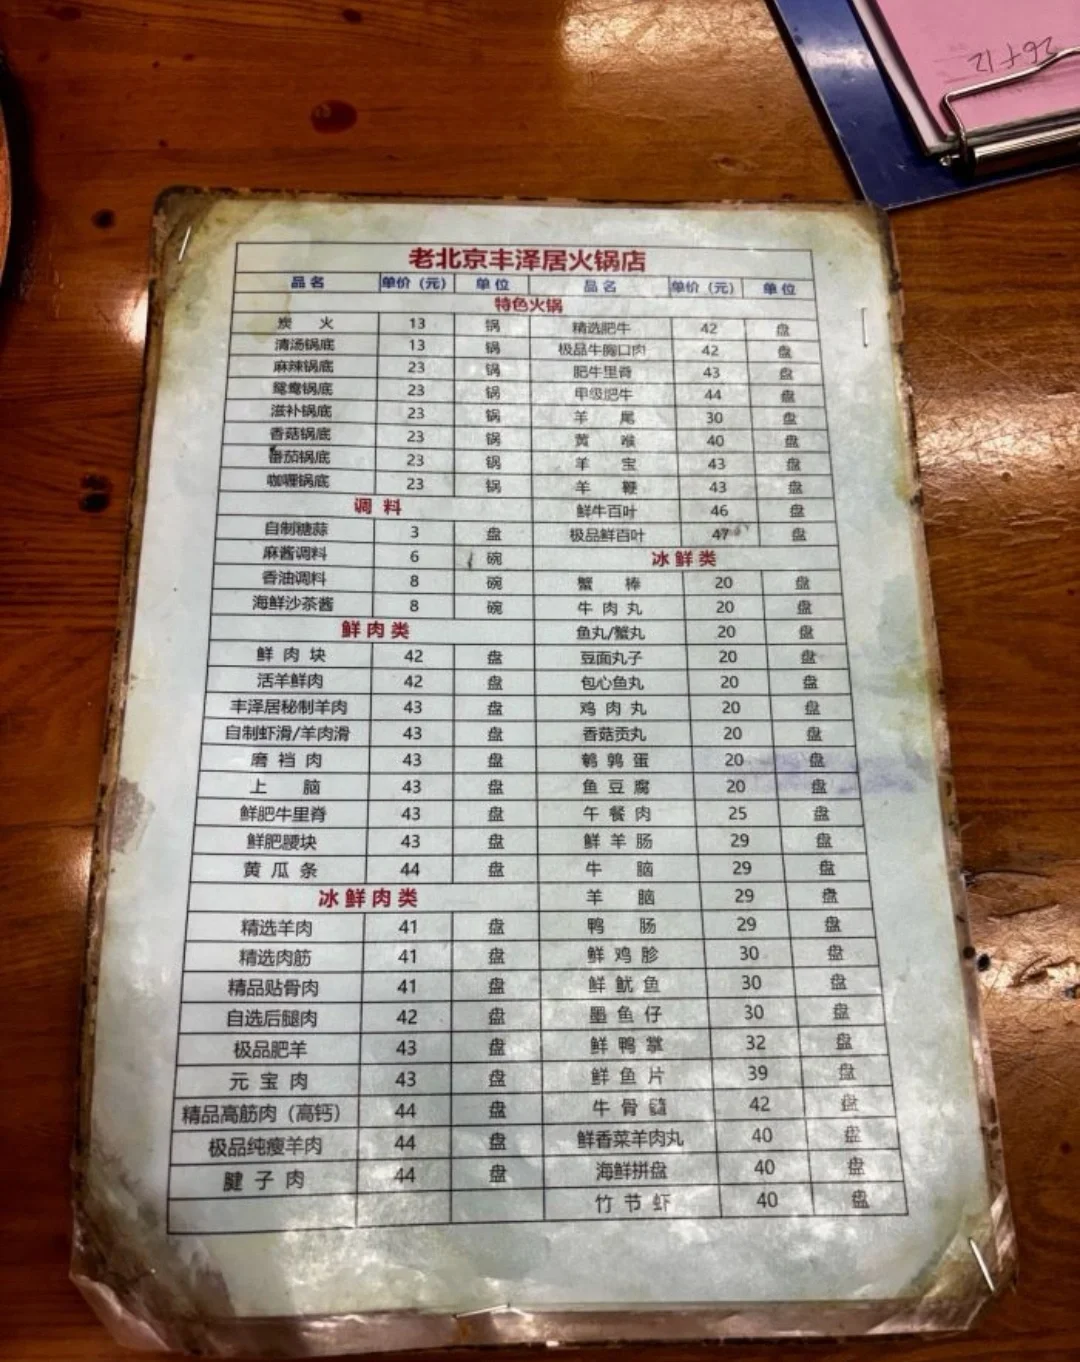 26+12
老北京丰泽居火锅店
品名 单价（元） 单位 品名 单价（元） 单位
特色火锅
炭火 13 锅 精选肥牛 42 盘
清汤锅底 13 锅 极品牛胸口肉 42 盘
麻辣锅底 23 锅 肥牛里脊 43 盘
鸳鸯锅底 23 锅 甲级肥牛 44 盘
滋补锅底 23 锅 羊尾 30 盘
香菇锅底 23 锅 黄喉 40 盘
番茄锅底 23 锅 羊宝 43 盘
咖喱锅底 23 锅 羊鞭 43 盘
调料 鲜牛百叶 46 盘
自制糖蒜 3 盘 极品鲜百叶 47 盘
麻酱调料 6 碗 冰鲜类
香油调料 8 碗 蟹棒 20 盘
海鲜沙茶酱 8 碗 牛肉丸 20 盘
鲜肉类 鱼丸/蟹丸 20 盘
鲜肉块 42 盘 豆面丸子 20 盘
活羊鲜肉 42 盘 包心鱼丸 20 盘
丰泽居秘制羊肉 43 盘 鸡肉丸 20 盘
自制虾滑/羊肉滑 43 盘 香菇贡丸 20 盘
磨裆肉 43 盘 鹌鹑蛋 20 盘
上脑 43 盘 鱼豆腐 20 盘
鲜肥牛里脊 43 盘 午餐肉 25 盘
鲜肥腰块 43 盘 鲜羊肠 29 盘
黄瓜条 44 盘 牛脑 29 盘
冰鲜肉类 羊脑 29 盘
精选羊肉 41 盘 鸭肠 29 盘
精选肉筋 41 盘 鲜鸡胗 30 盘
精品贴骨肉 41 盘 鲜鱿鱼 30 盘
自选后腿肉 42 盘 墨鱼仔 30 盘
极品肥羊 43 盘 鲜鸭掌 32 盘
元宝肉 43 盘 鲜鱼片 39 盘
精品高筋肉（高钙） 44 盘 牛骨髓 42 盘
极品纯瘦羊肉 44 盘 鲜香菜羊肉丸 40 盘
腱子肉 44 盘 海鲜拼盘 40 盘
竹节虾 40 盘